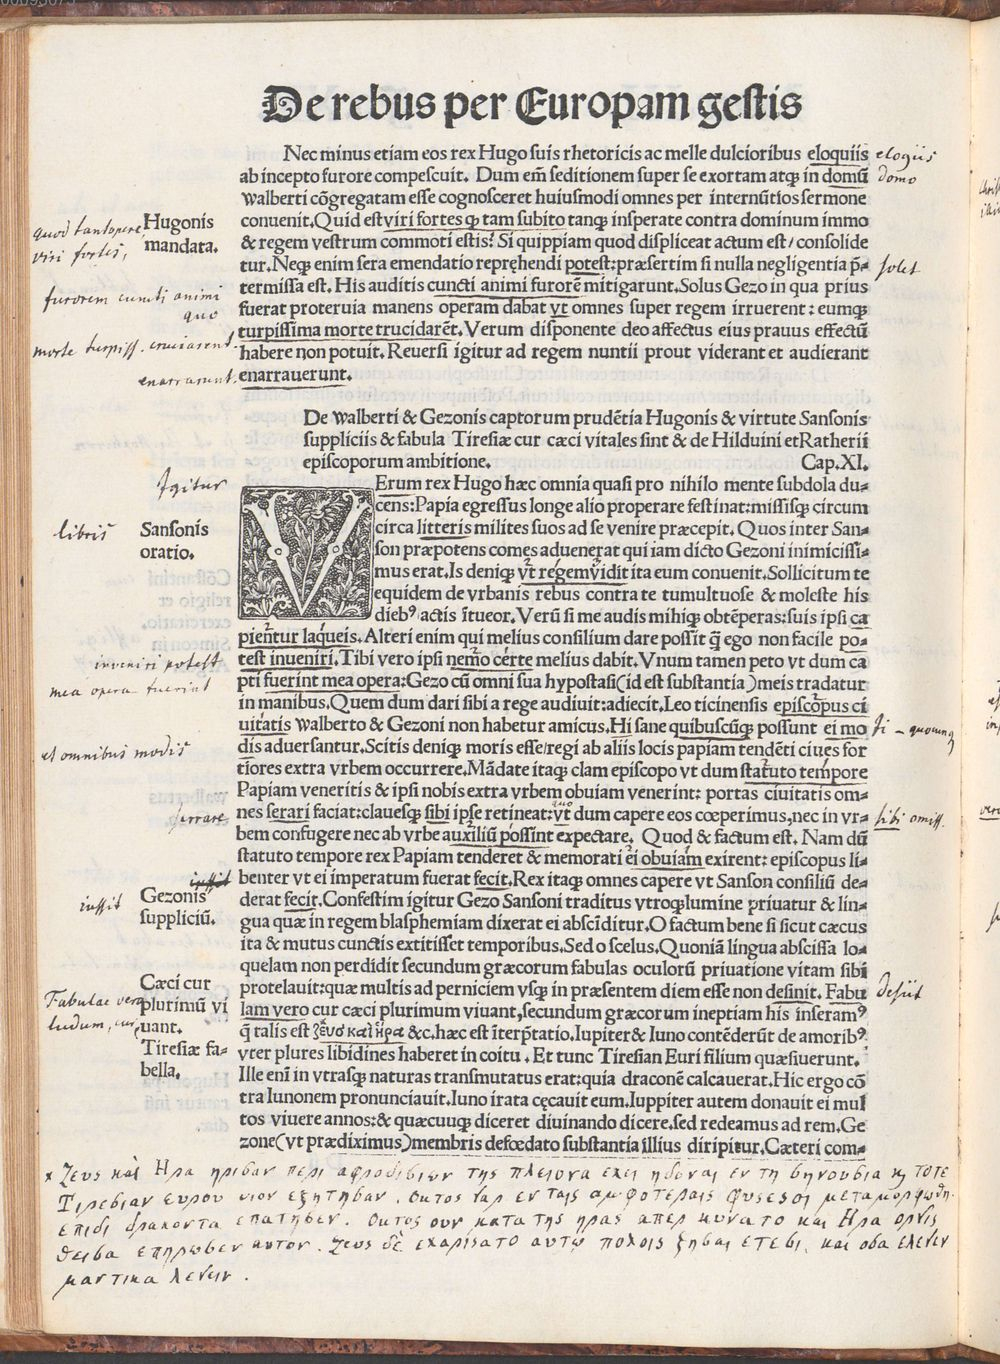 De rebus per Europam gestis
Nec minus etiam eos rex Hugo suis rhetoricis ac melle dulcioribus eloquiis
ab incepto furore compescuit. Dum em̃ seditionem super se exortam atqꝫ in domũ
Walberti cõgregatam esse cognosceret huiusmodi omnes per internũtios sermone
conuenit. Quid est viri fortes ꝙ tam subito tanqꝫ insperate contra dominum immo
& regem vestrum commoti estis? Si quippiam quod displiceat actum est/consolide
tur. Neqꝫ enim sera emendatio repręhendi potest: præsertim si nulla negligentia p̃-
termissa est. His auditis cuncti animi furorẽ mitigarunt. Solus Gezo in qua prius
fuerat proteruia manens operam dabat vt omnes super regem irruerent: eumqꝫ
turpissima morte trucidarẽt. Verum disponente deo affectus eius prauus effectũ
habere non potuit. Reuersi igitur ad regem nuntii prout viderant et audierant
enarrauerunt.
eloquiis
domo
solet
Hugonis
mandata.
quod tantopere,
viri fortes,
furorem cuncti animi
quo
morte turpiss. cruciarent.
enarrarunt.
De Walberti & Gezonis captorum prudẽtia Hugonis & virtute Sansonis
suppliciis & fabula Tiresiæ cur cæci vitales sint & de Hilduini et Ratherii
episcoporum ambitione. Cap.XI.
VErum rex Hugo hæc omnia quasi pro nihilo mente subdola du-
cens: Papia egressus longe alio properare festinat: missisqꝫ circum
circa litteris milites suos ad se venire præcepit. Quos inter San-
son præpotens comes aduenerat qui iam dicto Gezoni inimicissi-
mus erat. Is deniqꝫ vt regem vidit ita eum conuenit. Sollicitum te
equidem de vrbanis rebus contra te tumultuose & moleste his
diebꝰ actis ĩtueor. Verũ si me audis mihiqꝫ obtẽperas: suis ipsi ca
pientur laqueis. Alteri enim qui melius consilium dare possit q̃ ego non facile po-
test inueniri. Tibi vero ipsi nemo certe melius dabit. Vnum tamen peto vt dum ca
pti fuerint mea opera: Gezo cũ omni sua hypostasi (id est substantia) meis tradatur
in manibus. Quem dum dari sibi a rege audiuit: adiecit. Leo ticinensis episcopus ci
uitatis Walberto & Gezoni non habetur amicus. Hi sane quibuscũqꝫ possunt ei mo
dis aduersantur. Scitis deniqꝫ moris esse/regi ab aliis locis papiam tendẽti ciues for
tiores extra vrbem occurrere. Mãdate itaqꝫ clam episcopo vt dum statuto tempore
Papiam veneritis & ipsi nobis extra vrbem obuiam venerint: portas ciuitatis om-
nes serari faciat: clauesqꝫ sibi ipse retineat: vt dum capere eos cœperimus, nec in vr-
bem confugere nec ab vrbe auxiliũ possint expectare. Quod & factum est. Nam dũ
statuto tempore rex Papiam tenderet & memorati ei obuiam exirent: episcopus li-
benter vt ei imperatum fuerat fecit. Rex itaqꝫ omnes capere vt Sanson consiliũ de-
derat fecit. Confestim igitur Gezo Sansoni traditus vtroqꝫ lumine priuatur & lin-
gua quæ in regem blasphemiam dixerat ei abscĩditur. O factum bene si sicut cæcus
ita & mutus cunctis extitisset temporibus. Sed o scelus. Quoniã lingua abscissa lo-
quelam non perdidit secundum græcorum fabulas oculorũ priuatione vitam sibi
protelauit: quæ multis ad perniciem vsqꝫ in præsentem diem esse non desinit. Fabu
lam vero cur cæci plurimum viuant, secundum græcorum ineptiam his inseramꝰ
q̃ talis est ζευσ και ηρα &c. hæc est ĩterp̃tatio. Iupiter & Iuno contẽderũt de amoribꝰ
vter plures libidines haberet in coitu. Et tunc Tiresian Euri filium quæsiuerunt.
Ille enĩ in vtrasqꝫ naturas transmutatus erat: quia draconẽ calcauerat. Hic ergo cõ
tra Iunonem pronunciauit. Iuno irata cęcauit eum. Iuppiter autem donauit ei mul
tos viuere annos: & quæcuuqꝫ diceret diuinando dicere. sed redeamus ad rem. Ge
zone (vt prædiximus) membris defœdato substantia illius diripitur. Cæteri com-
Igitur
libris
Sansonis
oratio.
inueniri potest
mea opera fuerint
et omnibus modis
serrare
quo
sibi omiss.
iussit
Gezonis
suppliciũ.
Cæci cur
plurimũ vi
uant.
Tiresiæ fa-
bella.
Fabulae vero
ludum, cur
desiit
x Ζευς και Ηρα ηρισαν περι αφροδισιων της πλειονα εχει ηδοναι εν τη συνουσια κ τοτε
Τιρεσιαν ευρου υιον εξητησαν. Ουτος γαρ εν ταις αμφοτεραις φυσεσοι μεταμορφωθη.
επιδι δρακοντα επατησεν. Ουτος ουν κατα της ηρας απερ κυνατο και Ηρα οργις
θεισα επηρωσεν αυτον. Ζευς δε εχαρισατο αυτω πολοις ζησαι ετεσι, και οσα ελεγεν
μαντικα λεγειν.